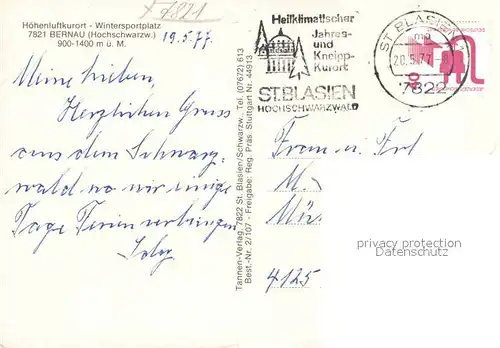 + 7821
Höhenluftkurort - Wintersportplatz
7821 BERNAU (Hochschwarzw.)
900-1400 m ü. M.
19.5.77
Meine Lieben,
Herzlichen Gruss
aus dem Schwarz-
wald wo wir einige
Tage Ferien verbringen
Tannen-Verlag, 7822 St. Blasien/Schwarzw. Tel. (07672) 613
Best.-Nr. 2/107 - Freigabe: Reg. Präs. Stuttgart Nr. 44913
Heilklimatischer
Jahres-
und
Kneipp-
Kurort
ST.BLASIEN
HOCHSCHWARZWALD
ST BLASIEN
mg
20.5.77
7822
70
Fam. u. Frl
M.
4125
privacy protection
AnsichtskartenVersand.com